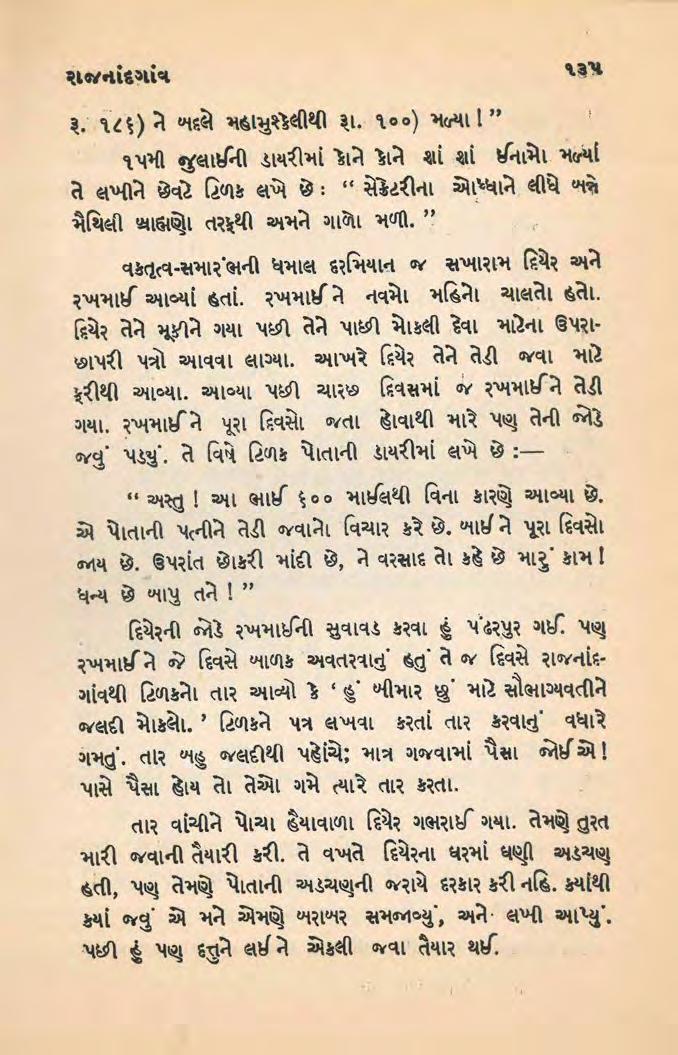 રાજનાંદગાંવ ૧૩૫
રૂ. ૧૮૬) ને બદલે મહામુશ્કેલીથી રૂા. ૧૦૦) મળ્યા ! ”
૧૫મી જુલાઈની ડાયરીમાં કોને કોને શાં શાં ઈનામો મળ્યાં
તે લખીને છેવટે ટિળક લખે છે : “ સેક્રેટરીના ઓધ્ધાને લીધે બન્ને
મૈથિલી બ્રાહ્મણો તરફથી અમને ગાળો મળી. ”
વક્તૃત્વ-સમારંભની ધમાલ દરમિયાન જ સખારામ દિયેર અને
રખમાઈ આવ્યાં હતાં. રખમાઈ ને નવમો મહિનો ચાલતો હતો.
દિયેર તેને મૂકીને ગયા પછી તેને પાછી મોકલી દેવા માટેના ઉપરા-
છાપરી પત્રો આવવા લાગ્યા. આખરે દિયેર તેને તેડી જવા માટે
ફરીથી આવ્યા. આવ્યા પછી ચારછ દિવસમાં જ રખમાઈ ને તેડી
ગયા. રખમાઈ ને પૂરા દિવસો જતા હોવાથી મારે પણ તેની જોડે
જવું પડયું. તે વિષે ટિળક પોતાની ડાયરીમાં લખે છે :—
“ અસ્તુ ! આ ભાઈ ૬૦૦ માઈલથી વિના કારણે આવ્યા છે.
એ પોતાની પત્નીને તેડી જવાનો વિચાર કરે છે. બાઈ ને પૂરા દિવસો
જાય છે. ઉપરાંત છોકરી માંદી છે, ને વરસાદ તો કહે છે મારું કામ !
ધન્ય છે બાપુ તને ! ”
દિયેરની જોડે રખમાઈની સુવાવડ કરવા હું પંઢરપુર ગઈ. પણ
રખમાઈ ને જે દિવસે બાળક અવતરવાનું હતું તે જ દિવસે રાજનાંદ-
ગાંવથી ટિળકનો તાર આવ્યો કે ‘ હું બીમાર છું માટે સૌભાગ્યવતીને
જલદી મોકલો. ’ ટિળકને પત્ર લખવા કરતાં તાર કરવાનું વધારે
ગમતું. તાર બહુ જલદીથી પહોંચે; માત્ર ગજવામાં પૈસા જોઈ એ !
પાસે પૈસા હોય તો તેઓ ગમે ત્યારે તાર કરતા.
તાર વાંચીને પોચા હૈયાવાળા દિયેર ગભરાઈ ગયા. તેમણે તુરત
મારી જવાની તૈયારી કરી. તે વખતે દિયેરના ઘરમાં ઘણી અડચણ
હતી, પણ તેમણે પોતાની અડચણની જરાયે દરકાર કરી નહિ. કયાંથી
કયાં જવું એ મને એમણે બરાબર સમજાવ્યું, અને લખી આપ્યું.
પછી હું પણ દત્તુને લઈ ને એકલી જવા તૈયાર થઈ.